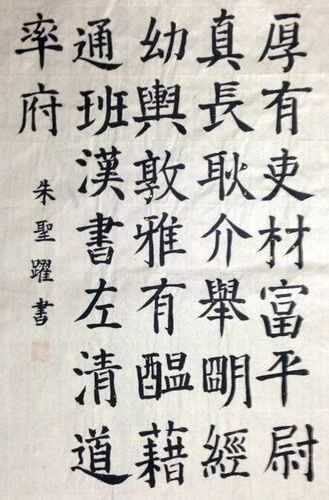 厚有吏材富平尉
真長耿介舉朙經
幼輿敦雅有醞藉
通班漢書左清道
率府
朱聖躍書